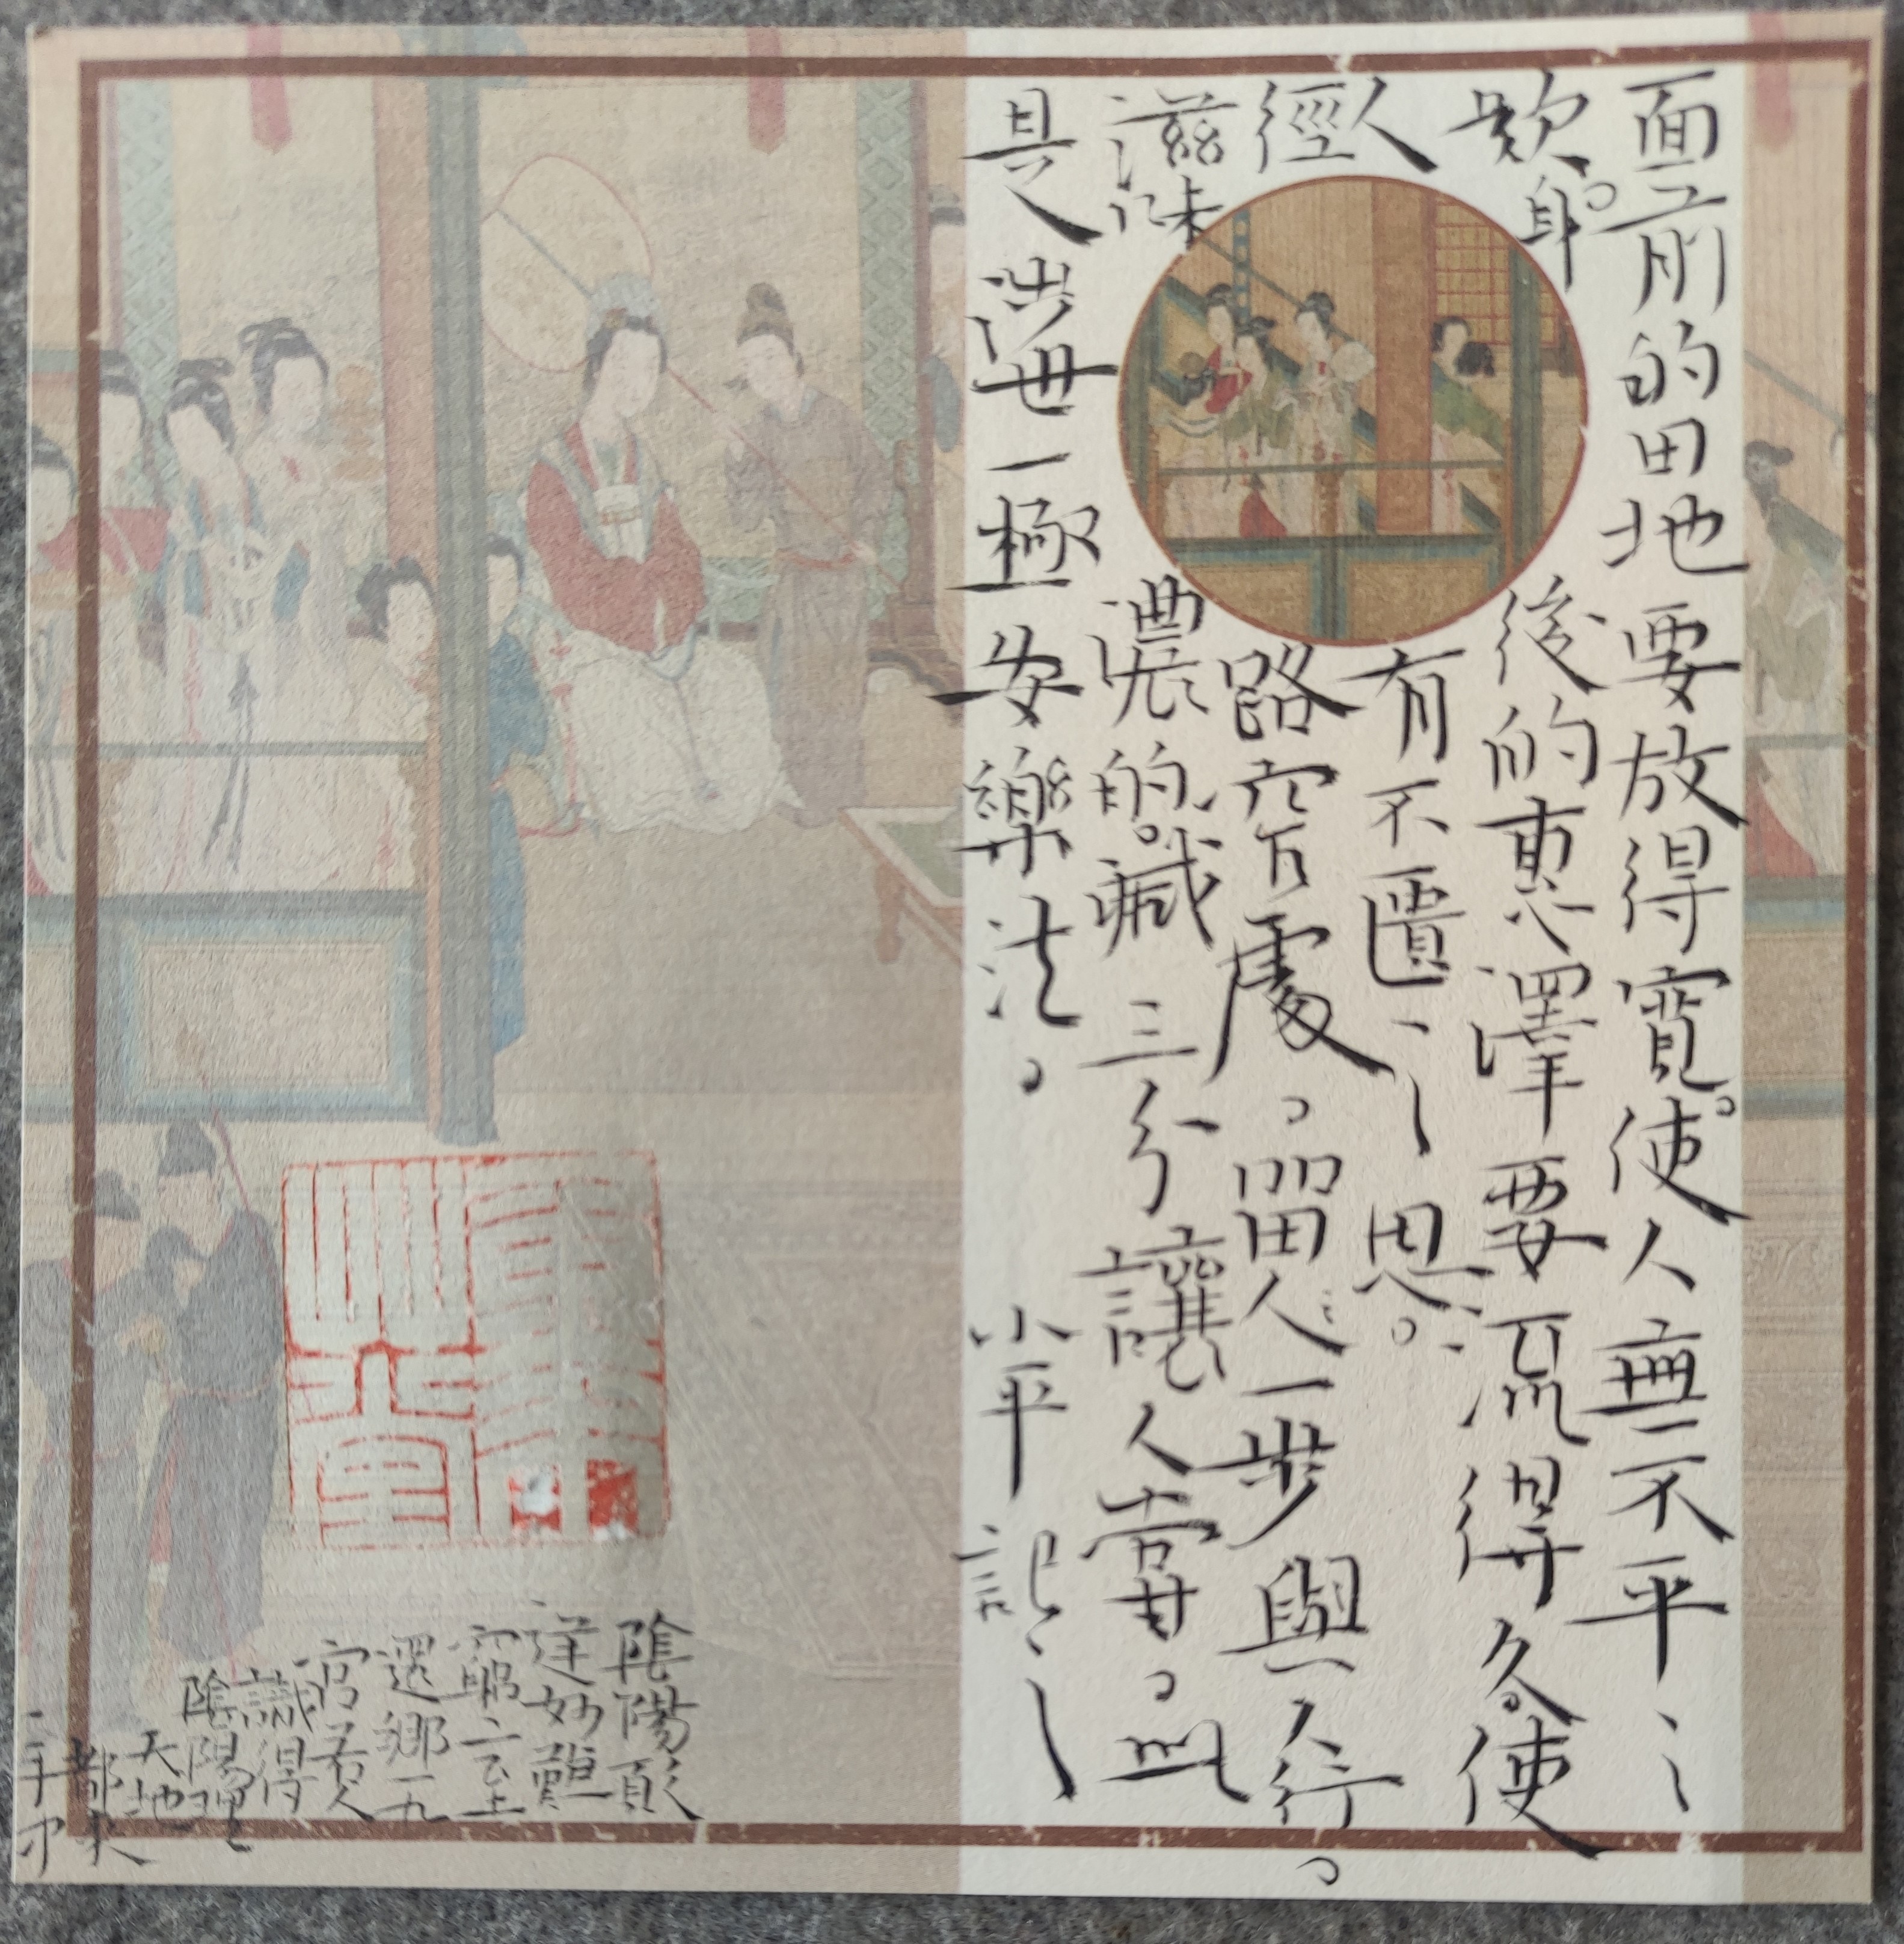 面前的田地要放得寬。使人無不平之
歎。身後的惠澤要流得久。使
人有不匱之思。
徑路窄處。留人一步與人行。
滋味濃的。減三分讓人嘗。此
是涉世一極安樂法。
小平記之
陰陽順
逆妙難
窮二至
還鄉一九
宮若人
識得
陰陽理
天地
都來
一手中